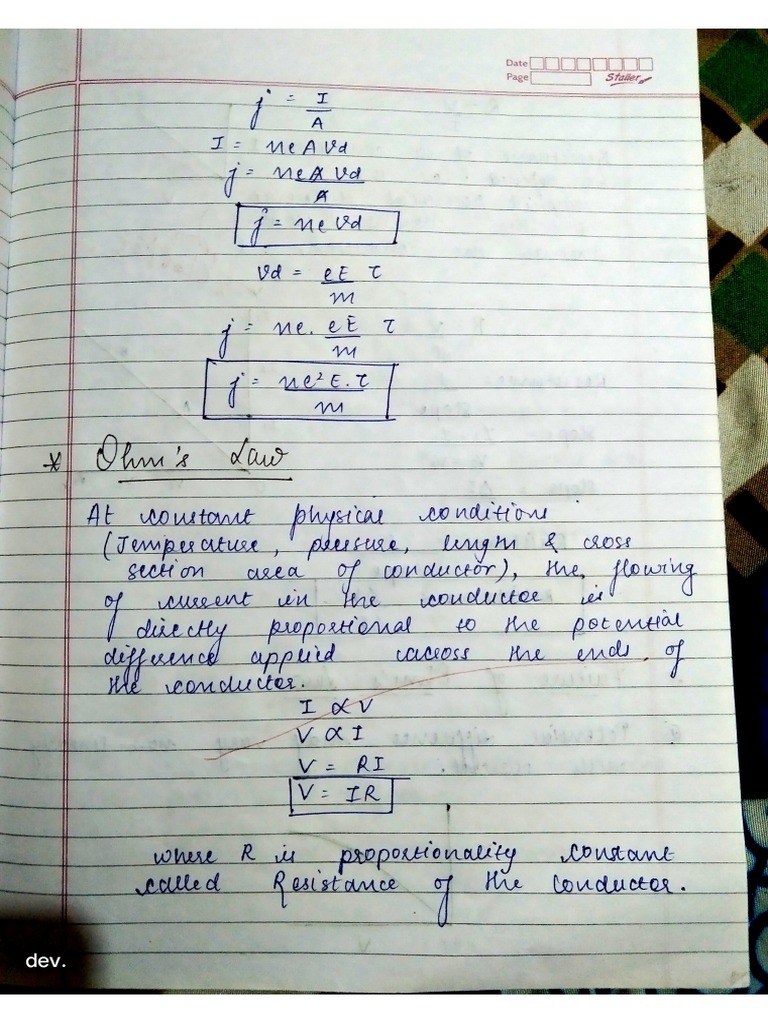 Date
Page Staller
j = I/A
I = neAVd
j = neAVd/A
j = neVd
Vd = eE/m τ
j = ne. eE/m τ
j = ne²E.τ/m
* Ohm's Law
At constant physical condition
(Temperature, pressure, length & cross
section area of conductor), the flowing
of current in the conductor is
directly proportional to the potential
difference applied across the ends of
the conductor.
I ∝ V
V ∝ I
V = RI
V = IR
where R is proportionality constant
called Resistance of the conductor.
dev.